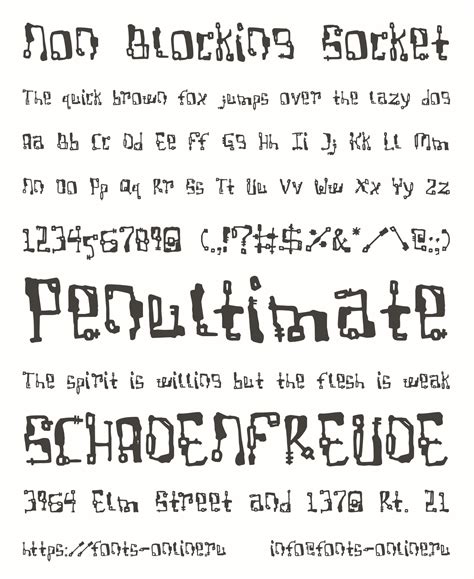 Non Blocking Socket
The quick brown fox jumps over the lazy dog
Aa Bb Cc Dd Ee Ff Gg Hh Ii Jj Kk Ll Mm
Nn Oo Pp Qq Rr Ss Tt Uu Vv Ww Xx Yy Zz
1234567890 (.,!?#$%&*/\@:;)
Penultimate
The spirit is willing but the flesh is weak
SCHADENFREUDE
3964 Elm Street and 1370 Rt. 21
https://fonts-online.ru info@fonts-online.ru